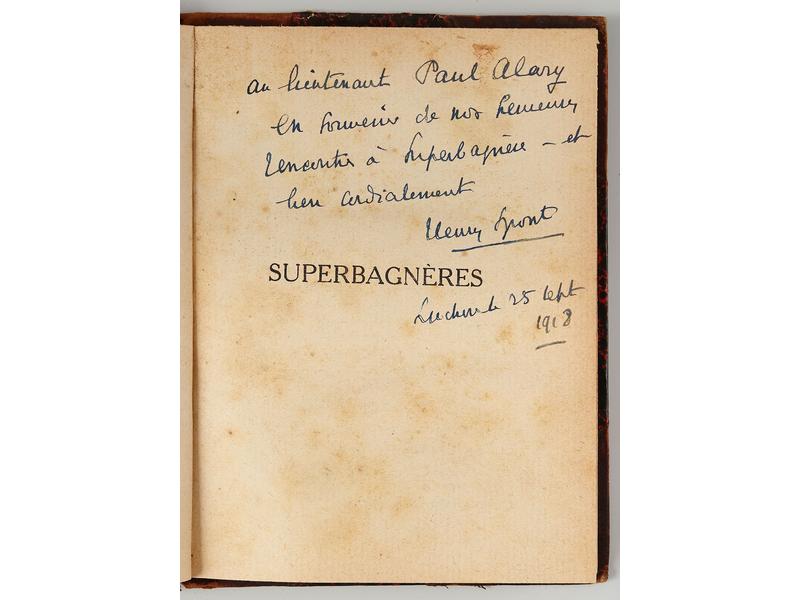 au lieutenant Paul Alary
en souvenir de nos heureuses
rencontres à Superbagnère - et
bien cordialement
Henry Spont
SUPERBAGNÈRES
Luchon le 25 sept
1918